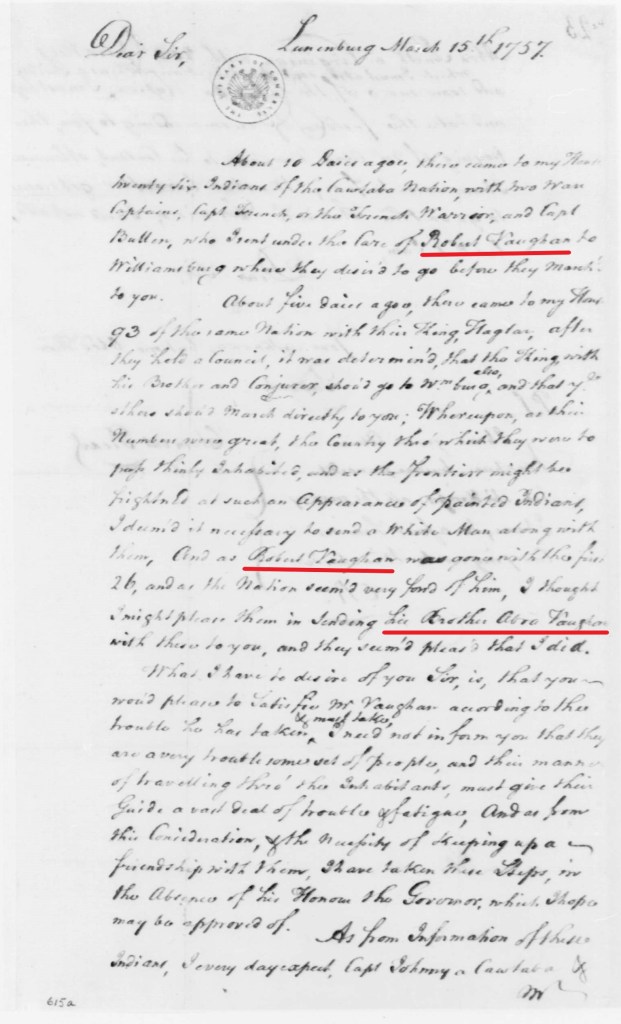 Dear Sir,
Lunenburg March 15.th 1757.
THE LIBRARY OF CONGRESS
About 10 Daies agoe, there came to my House
twenty six Indians of the Cawtaba Nation, with two War
Captains, Capt French, or the French Warrior, and Capt
Bullen, who I sent under the Care of Robert Vaughan to
Williamsburg where they desir'd to go before they March'd
to you.
About five daies agoe, there came to my House
93 of the same Nation with their King, Haglar, after
they held a Council, it was determin'd, that the King, with
his Brother and Conjurer, shou'd go to Wmburg also, and that ye
others shou'd March directly to you; Whereupon, as their
Numbers were great, the Country thro' which they were to
pass thinly Inhabited, and as the frontiers might be
frightned at such an Appearance of painted Indians,
I deem'd it necessary to send a White Man along with
them, And as Robert Vaughan was gone with the first
26, and as the Nation seem'd very fond of him, I thought
I might please them in sending his Brother Abro Vaughan
with these to you, and they seem'd pleas'd that I did.
What I have to desire of you Sir, is, that you
wou'd please to Satisfie Mr Vaughan according to the
trouble he has taken, & must take, I need not inform you that they
are a very troublesome set of people, and their manner
of travelling thro' the Inhabitants, must give their
Guide a vast deal of trouble & fatigue, And as from
this Consideration, & the Necessity of keeping up a
friendship with them, I have taken these Steps, in
the Absence of his Honour the Governor, which I hope
may be approved of.
As from Information of these
Indians, I every day expect, Capt Johnny a Cawtaba &
Mr
615a